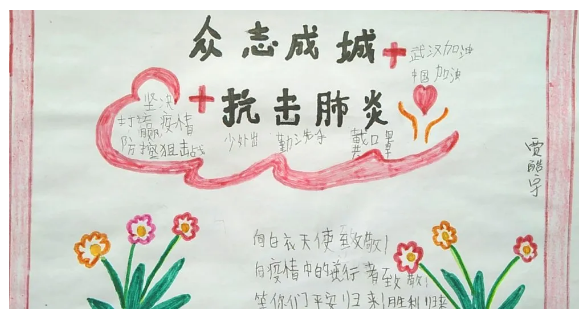 众志成城
武汉加油
中国加油
抗击肺炎
坚决
打赢疫情
防控狙击战
少外出 勤洗手 戴口罩
贾皓宇
向白衣天使致敬!
向疫情中的逆行者致敬!
等你们平安归来!胜利归来